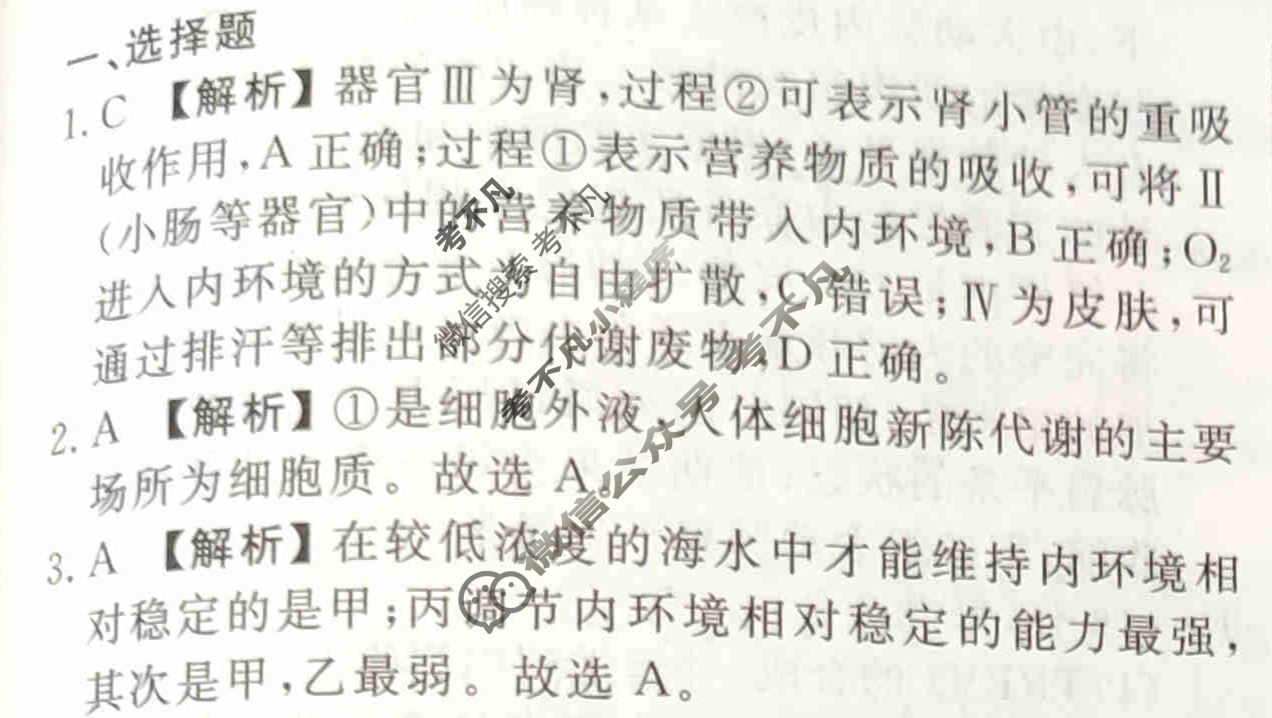 一、选择题
1. C 【解析】器官Ⅲ为肾,过程②可表示肾小管的重吸
收作用,A 正确;过程①表示营养物质的吸收,可将Ⅱ
(小肠等器官)中的营养物质带入内环境,B 正确;O₂
进入内环境的方式为自由扩散,C 错误;Ⅳ为皮肤,可
通过排汗等排出部分代谢废物,D 正确。
2. A 【解析】①是细胞外液,人体细胞新陈代谢的主要
场所为细胞质。故选 A。
3. A 【解析】在较低浓度的海水中才能维持内环境相
对稳定的是甲;丙调节内环境相对稳定的能力最强,
其次是甲,乙最弱。故选 A。
考不凡
微信搜索 考不凡
考不凡小程序
微信公众号 考不凡